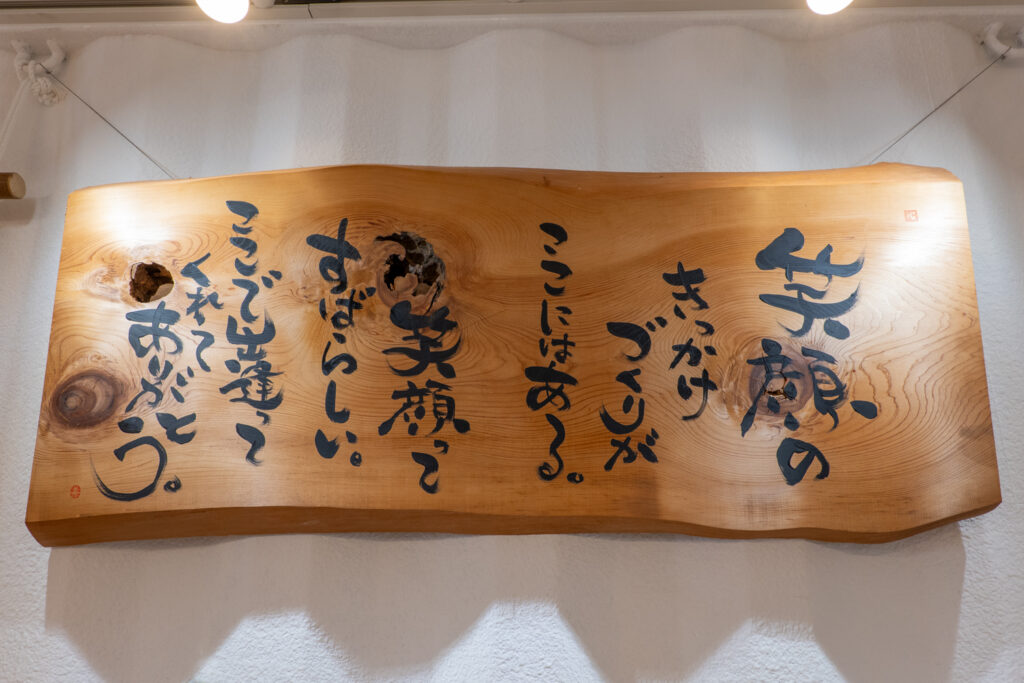 笑顔の
きっかけ
づくりが
ここにはある。
笑顔って
すばらしい。
ここで出逢って
くれて
ありがとう。